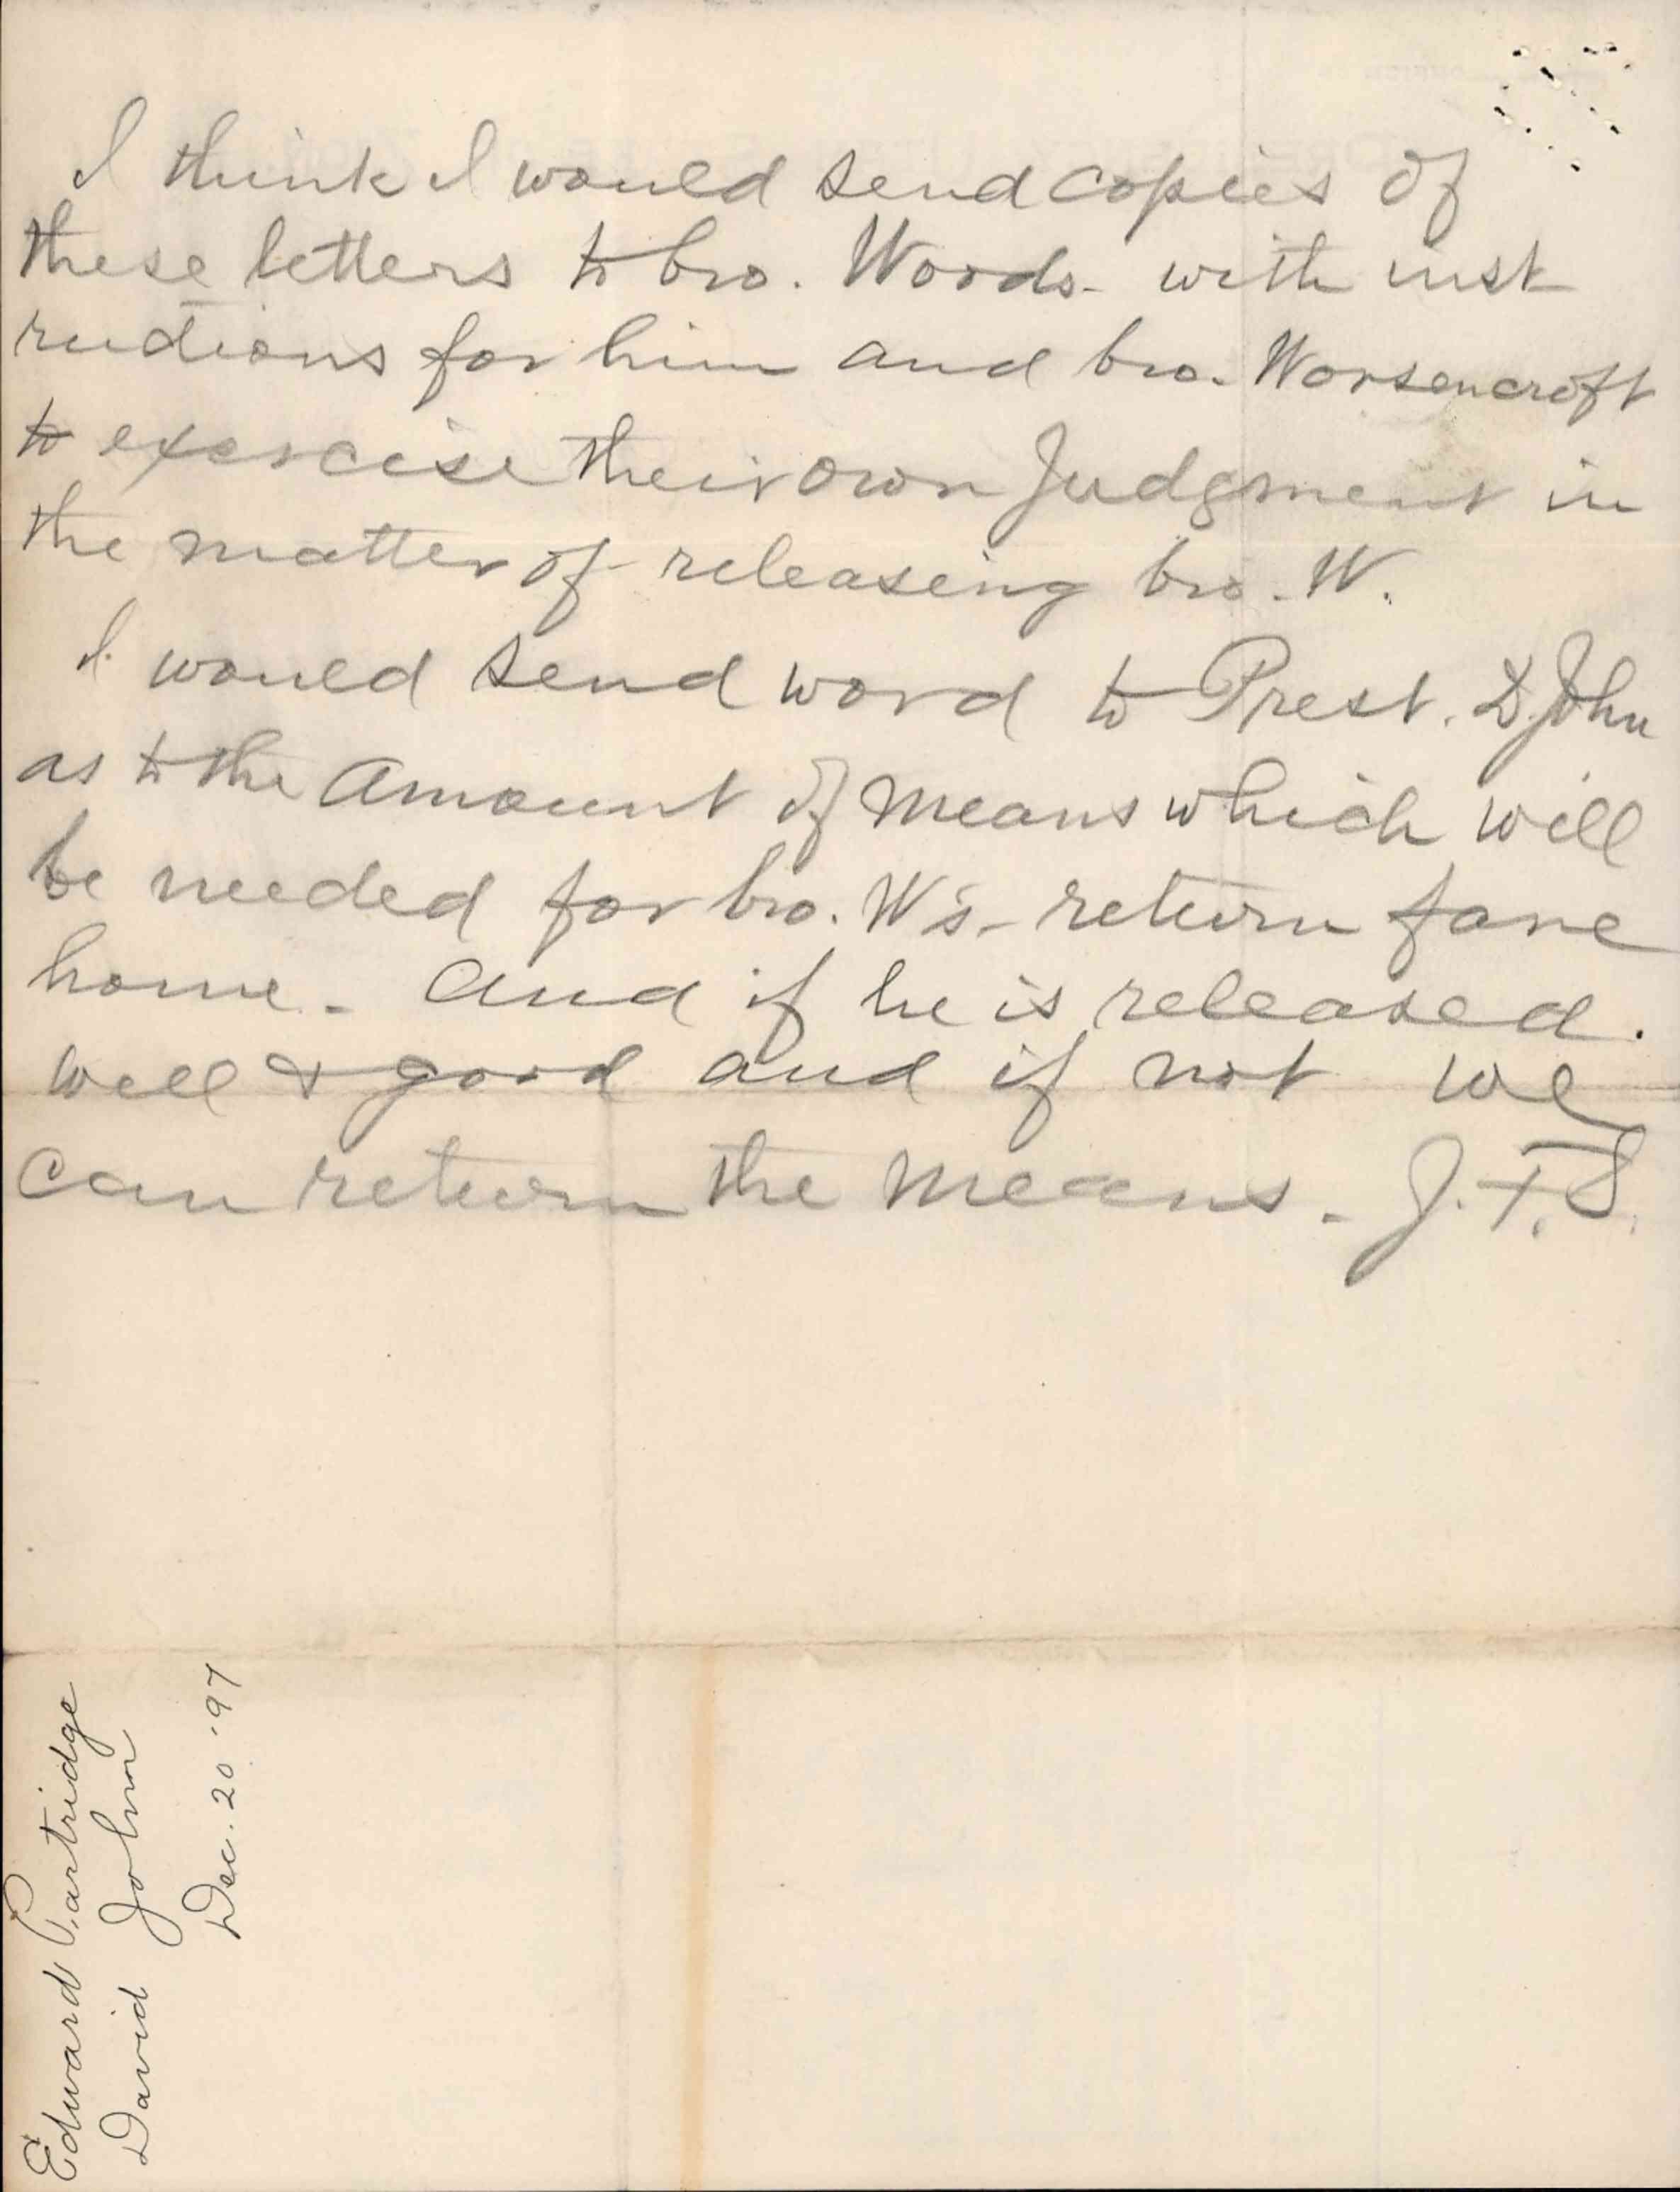 I think I would send copies of
these letters to bro. Woods- with inst
ructions for him and bro. Worsencroft
to exercise their own Judgment in
the matter of releasing bro. W.
I would send word to Prest. D. John
as to the Amount of Means which will
be needed for bro. W's- return fare
home- And if he is released.
well & good and if not we
can return the Means- J. F. S.
Edward Partridge
David John
Dec. 20 '97